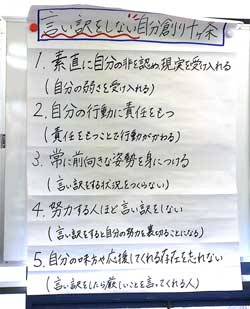 言い訳をしない自分創り十ヶ条
1. 素直に自分の非を認め現実を受け入れる
(自分の弱さを受け入れる)
2. 自分の行動に責任をもつ
(責任をもつことで行動がかわる)
3. 常に前向きな姿勢を身につける
(言い訳をする状況をつくらない)
4. 努力する人ほど言い訳をしない
(言い訳をすると自分の努力を裏切ることになる)
5. 自分の味方や応援してくれる存在を忘れない
(言い訳をしたら厳しいことを言ってくれる人)